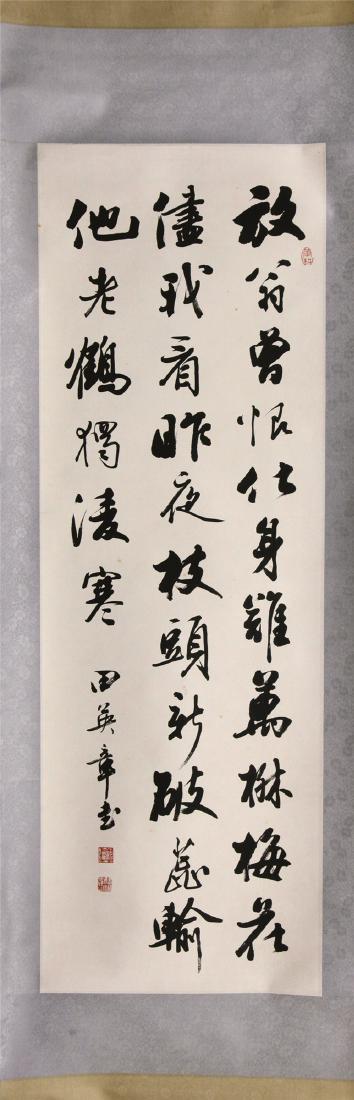 放翁曾恨化身難萬樹梅花
儘我看昨夜枝頭新破蕊輸
他老鶴獨淩寒
田英章書